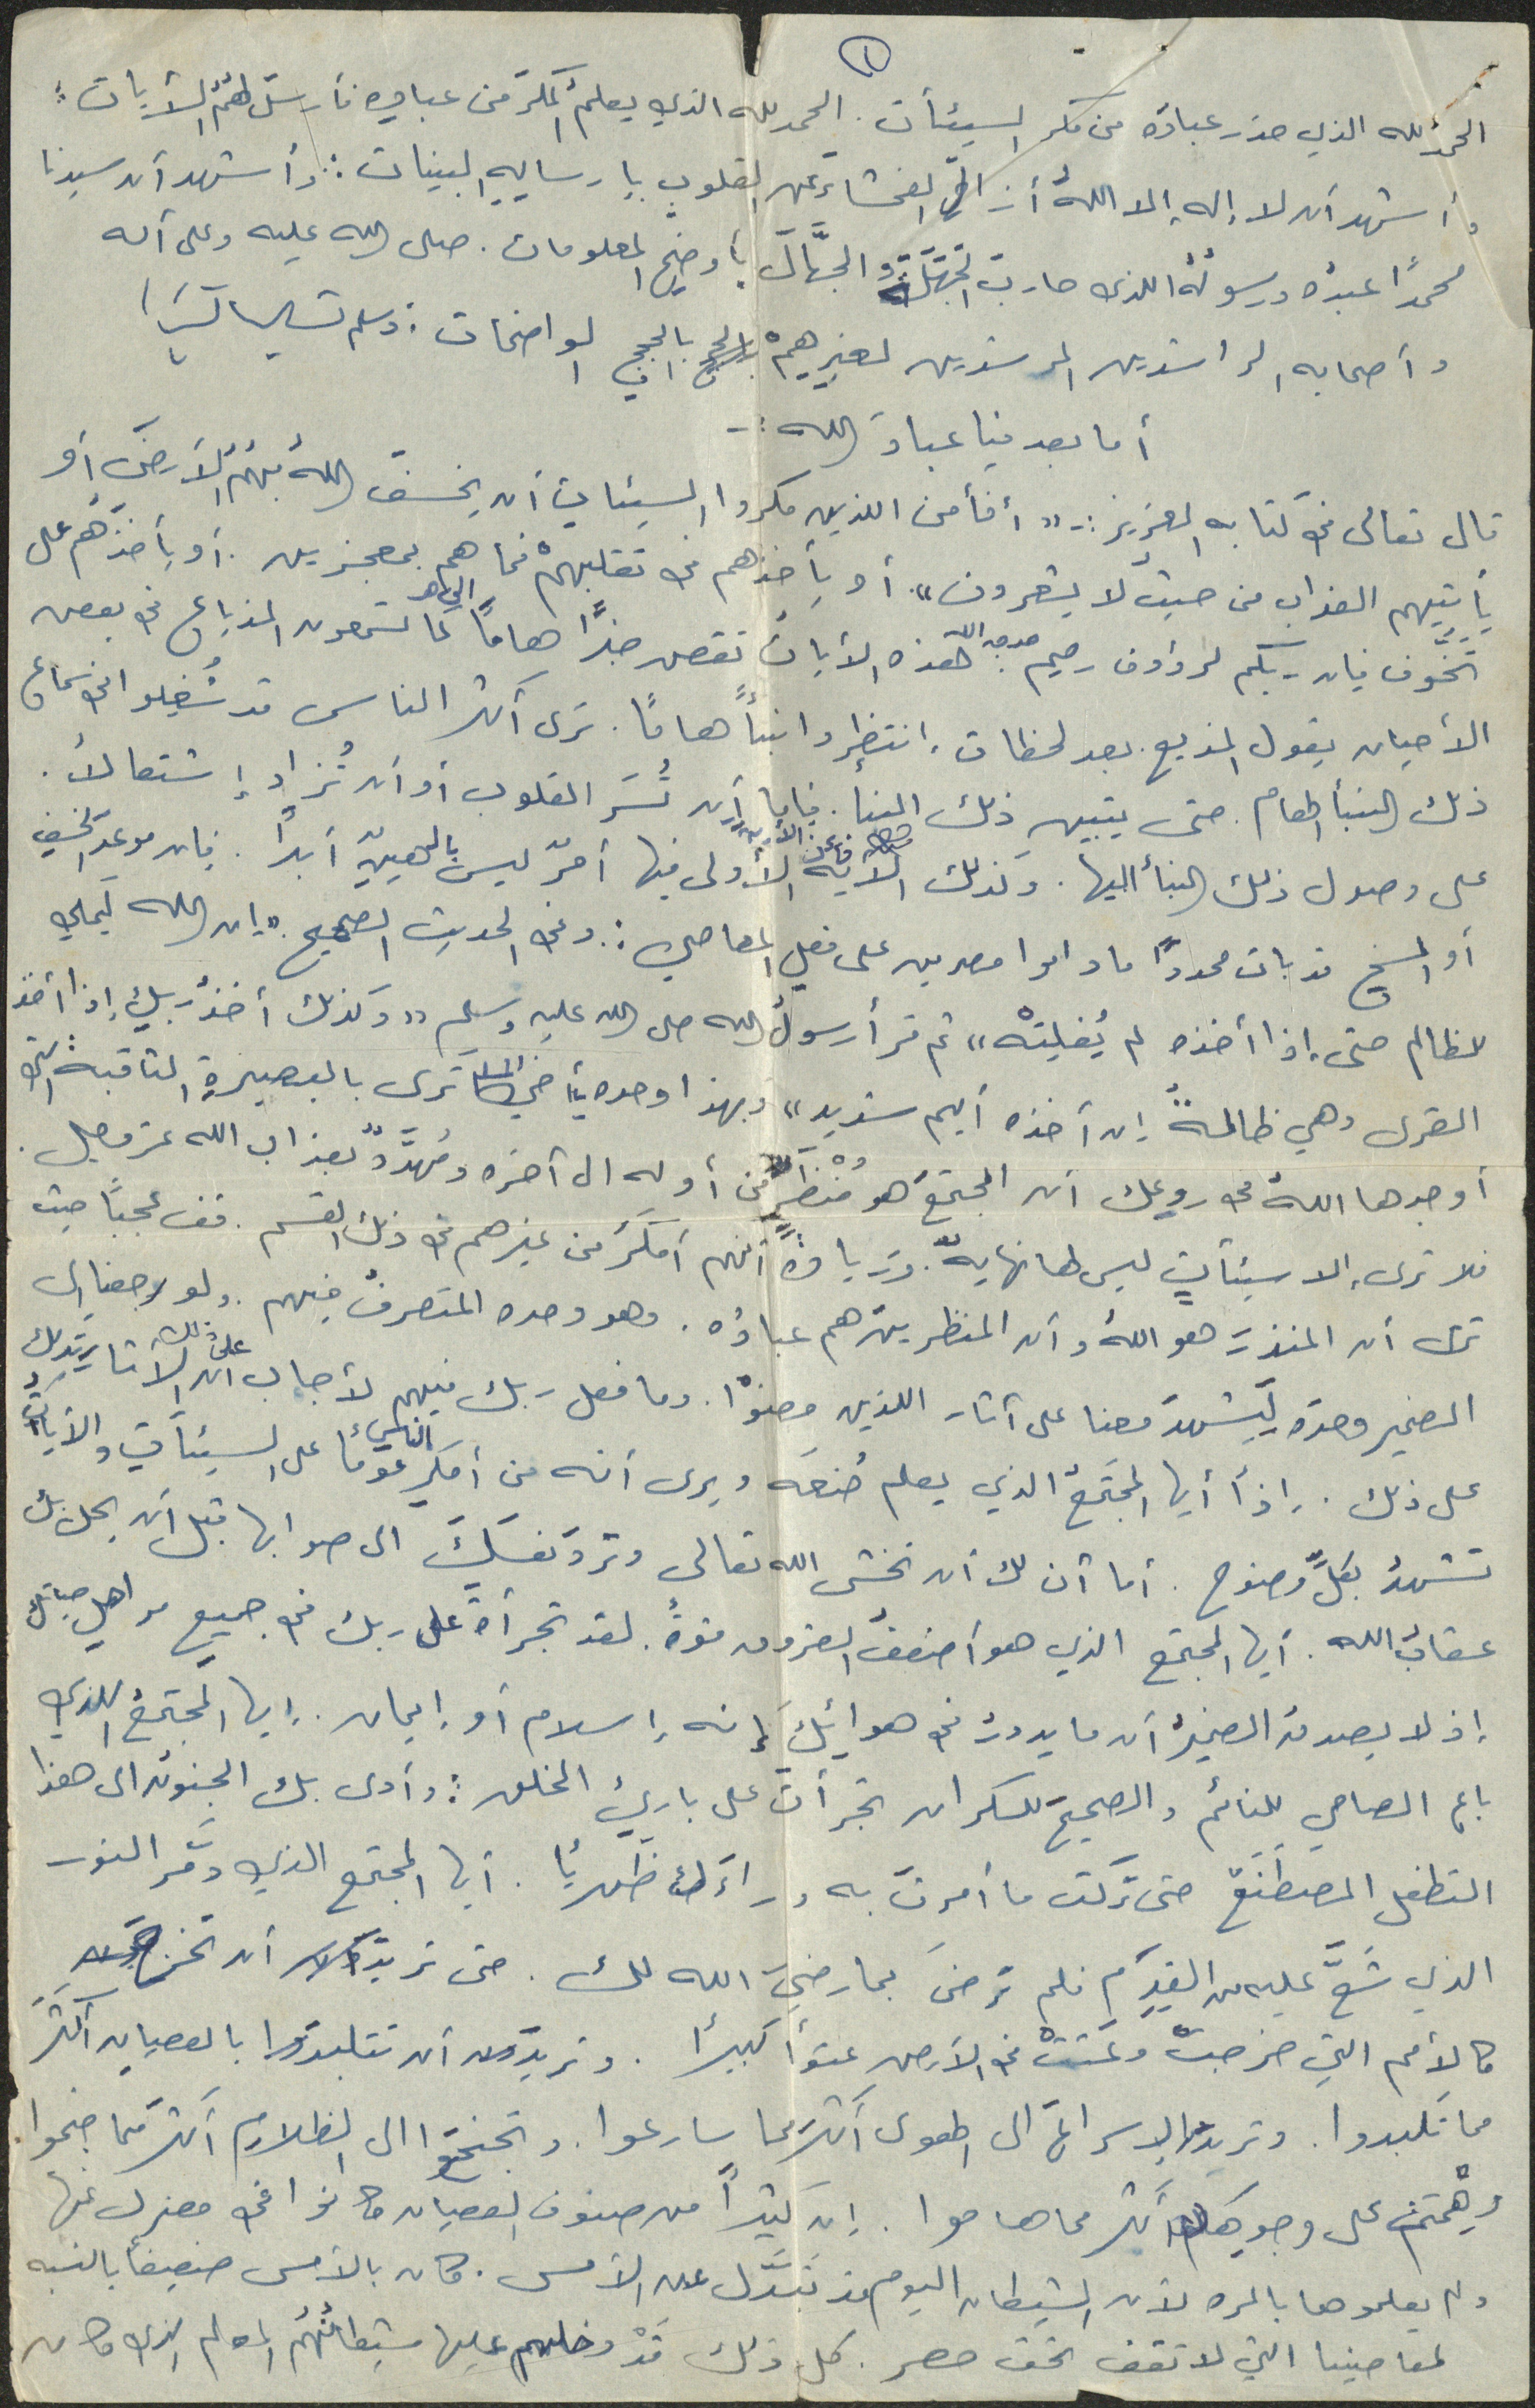 ١
الحمد لله الذي حذر عباده من مكر السيئات. الحمد لله الذي يعلم المكر من عباده فأرسل لهم الأيات:
وأشهد أن لا إله إلا الله أزال الفحشاء عن القلوب بإرساليه البينات: وأشهد أن سيدنا
محمدًا عبده ورسوله الذي حارب الجهلة والجهّال بأوضح المعلومات. صلى الله عليه وعلى آله
وأصحابه الراشدين المرشدين لغيرهم بالحجج الواضحات: وسلم تسليما كثيرا
أما بعد فيا عباد الله:-
قال تعالى في كتابه العزيز:- «أفأمن الذين مكروا السيئات أن يخسف الله بهم الأرض أو
يأتيهم العذاب من حيث لا يشعرون». أو يأخذهم في تقلبهم فما هم بمعجزين. أو يأخذهم على
تخوف فإن ربكم لرؤوف رحيم هذه الأيات تقص خبرًا هامًا لما تسمعون المذياع في بعض
الأحيان يقول المذيع. بعد لحظات. انتظروا نبأً هامًا. ترى أكثر الناس قد شُغلوا في سماع
ذلك النبأ الهام. حتى يتبين ذلك النبأ. فإما أن تُسَر القلوب أو أن تُزاد إشتعالاً.
على وصول ذلك النبأ اليها. وكذلك الأية الأولى فيها أمرٌ ليس بالهيّن أبدًا. فإن موعد الخسف
أو المسخ قد بات محددًا ما داموا مصرين على فعل المعاصي: وفي الحديث الصحيح. «إن الله ليملي
للظالم حتى إذا أخذه لم يُفلته» ثم قرأ رسول الله صلى الله عليه وسلم «وكذلك أخذ ربك إذا أخذ
القرى وهي ظالمةٌ إن أخذه أليم شديد» وبهذا وحده يأخي المسلم ترى بالبصيرة الثاقبة التي
أوجدها الله في روعك أن المجتمع هو مُنْظَر من أوله الى آخره ومُهدَّدٌ بعذاب الله عز وجل.
فلا ترى إلا سيئاتٍ ليس لها نهايةٌ. وزيادةً أنهم أمكر من غيرهم في ذلك القسم. فقف عجبًا حيث
ترى أن المنذر هو الله وأن المنظرين هم عباده. وهو وحده المتصرف فيهم. ولو رجعنا الى
الضمير وحده ليشهد معنا على آثار اللذين مضوا. وما فعل ربك فيهم لأجاب
على ذلك. إذاً أيها المجتمع الذي يعلم صُنعه ويرى أنه من أمكر الناس عومًا على السيئات والأيات
تشهد بكل وضوح. أما آن لك أن تخشى الله تعالى وترد نفسك الى صوابها قبل أن يحل بك
عقاب الله. أيها المجتمع الذي هو أضعف القرون قوةً. لقد تجرأة على ربك في جميع مراحل حياتك
إذ لا يصدق الضمير أن ما يدور في هوائك إنه إسلام أو إيمان. إيها المجتمع الذي
باع الصاحي للنائم والصحيح للسكران تجرأت على باريء الخلق: وأدى بك الجنون الى هذا
التطفل المصطنع حتى تركت ما أمرت به وراءك ظهريًا. أيها المجتمع الذي دمّر النور
الذي شعّ عليه من القِدَم فلم ترضَ بما رضي الله لك. حتى تريد أن تخرج
كالأمم التي خرجت وعَتَتْ في الأرض عتوًا كبيرًا. وتريدون أن تتلبدوا بالعصيان أكثر
مما تلبدوا. وتريد الإسراع الى الهوى أكثر مما سارعوا. وتجنحوا الى الظلام أكثر مما جنحوا.
وهِمتم على وجوهكم أكثر مما هاموا. إن كثيرًا من صنوف العصيان كانوا في معزل عنها
ولم يعلموها بالمره لأن الشيطان اليوم قد تبدّل عن الأمس. وكان بالأمس ضعيفًا بالنسبه
لمعاصينا التي لا تقف تحت حصر. كل ذلك قَدْ دخلهم عليها شيطانُهُم الم لم الذي كان